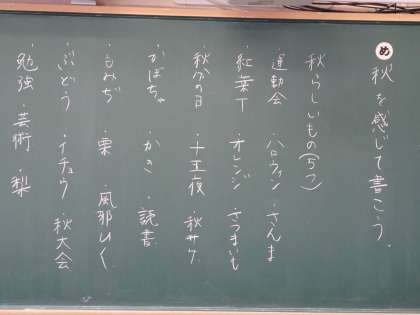 め 秋を感じて書こう。
秋らしいもの(5つ)
・運動会 ・ハロウィン ・さんま
・紅葉 オレンジ ・さつまいも
・秋分の日 ・十五夜 秋サケ
・かぼちゃ ・かき ・読書
・もみぢ ・栗 ・風邪ひく
・ぶどう ・イチョウ ・秋大会
・勉強 ・芸術 ・梨